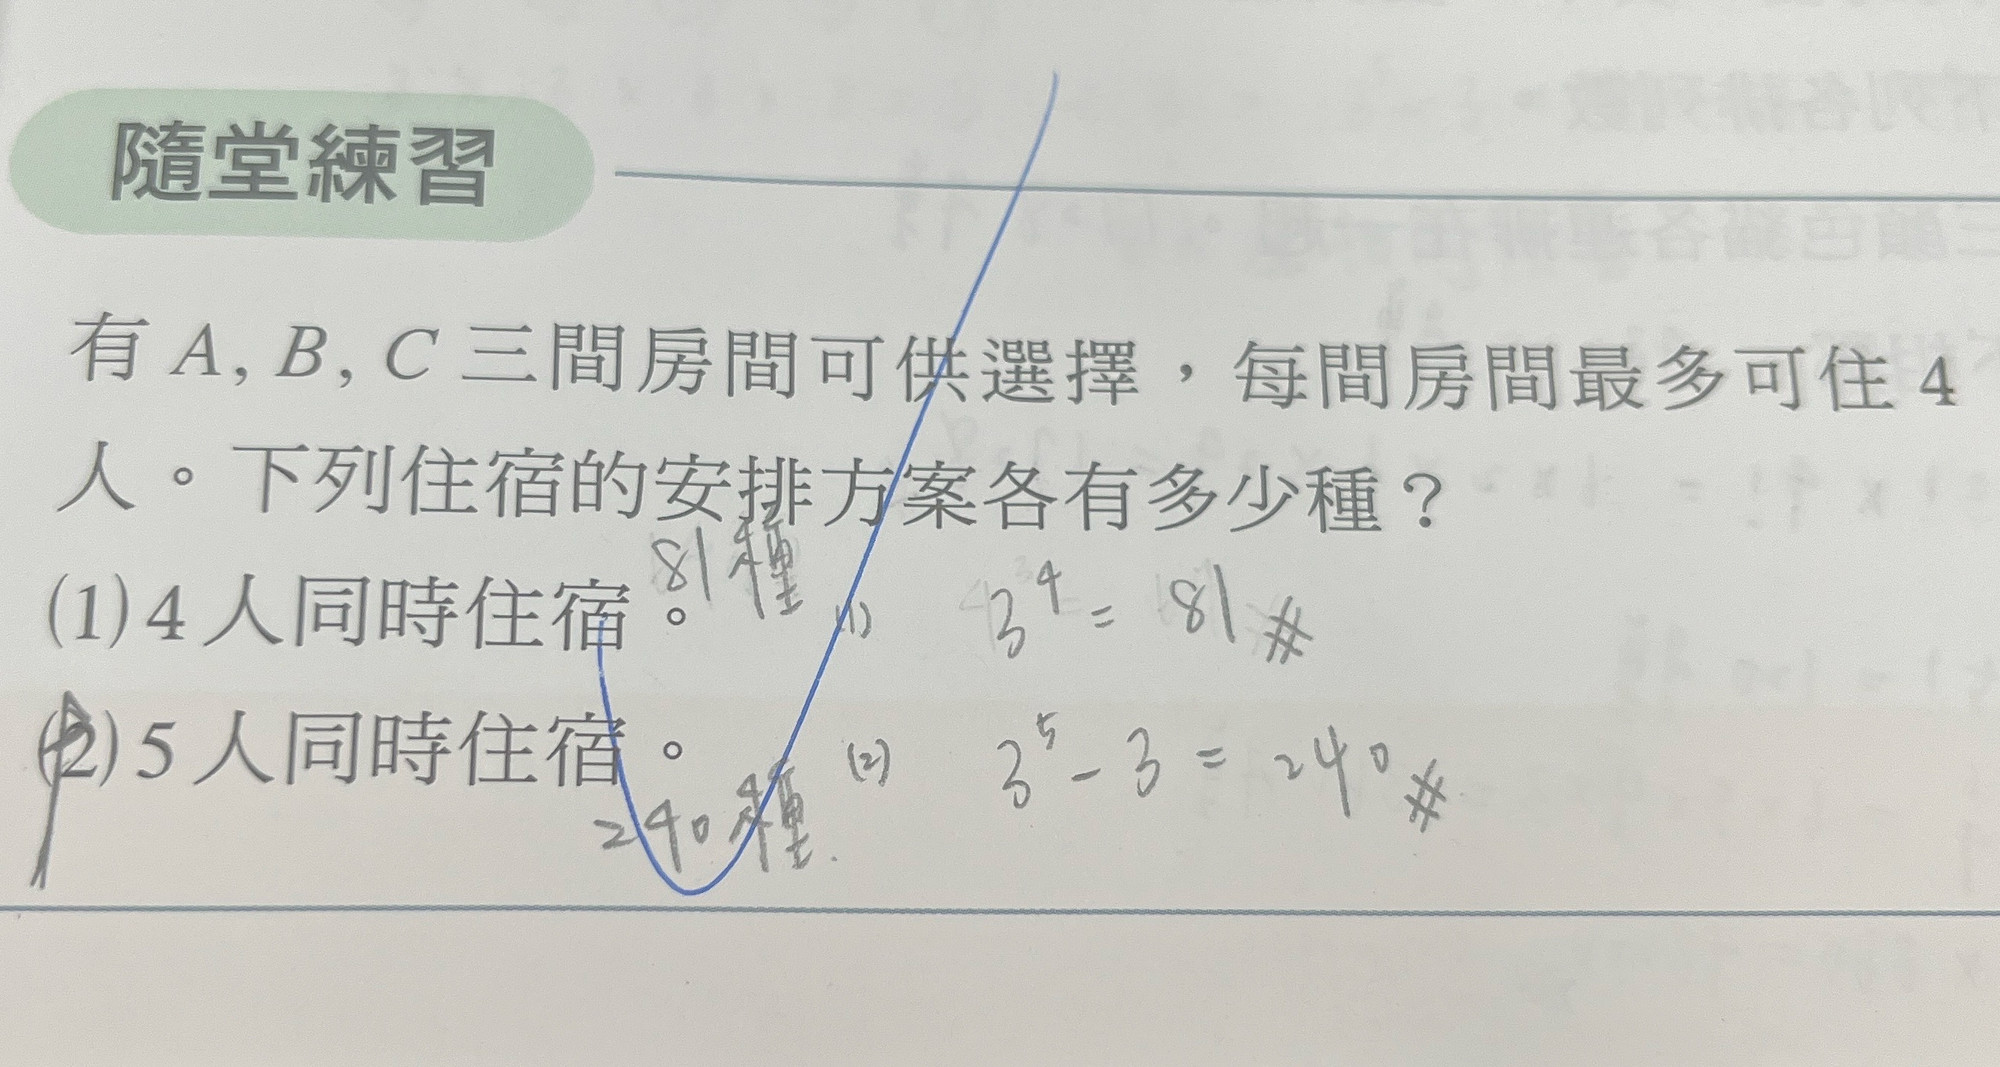 隨堂練習
有 A, B, C 三間房間可供選擇，每間房間最多可住 4
人。下列住宿的安排方案各有多少種？
81種
(1) 4 人同時住宿。 (1) 3⁴ = 81 #
(2) 5 人同時住宿。 (2) 3⁵ - 3 = 240 #
240種.